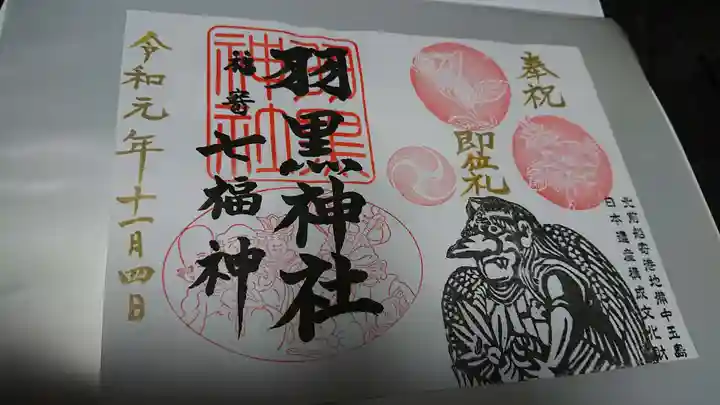 奉祝
即位礼
北前船寄港地備中玉島
日本遺産構成文化財
羽黒神社
羽黒
神社
七福神
令和元年十一月四日